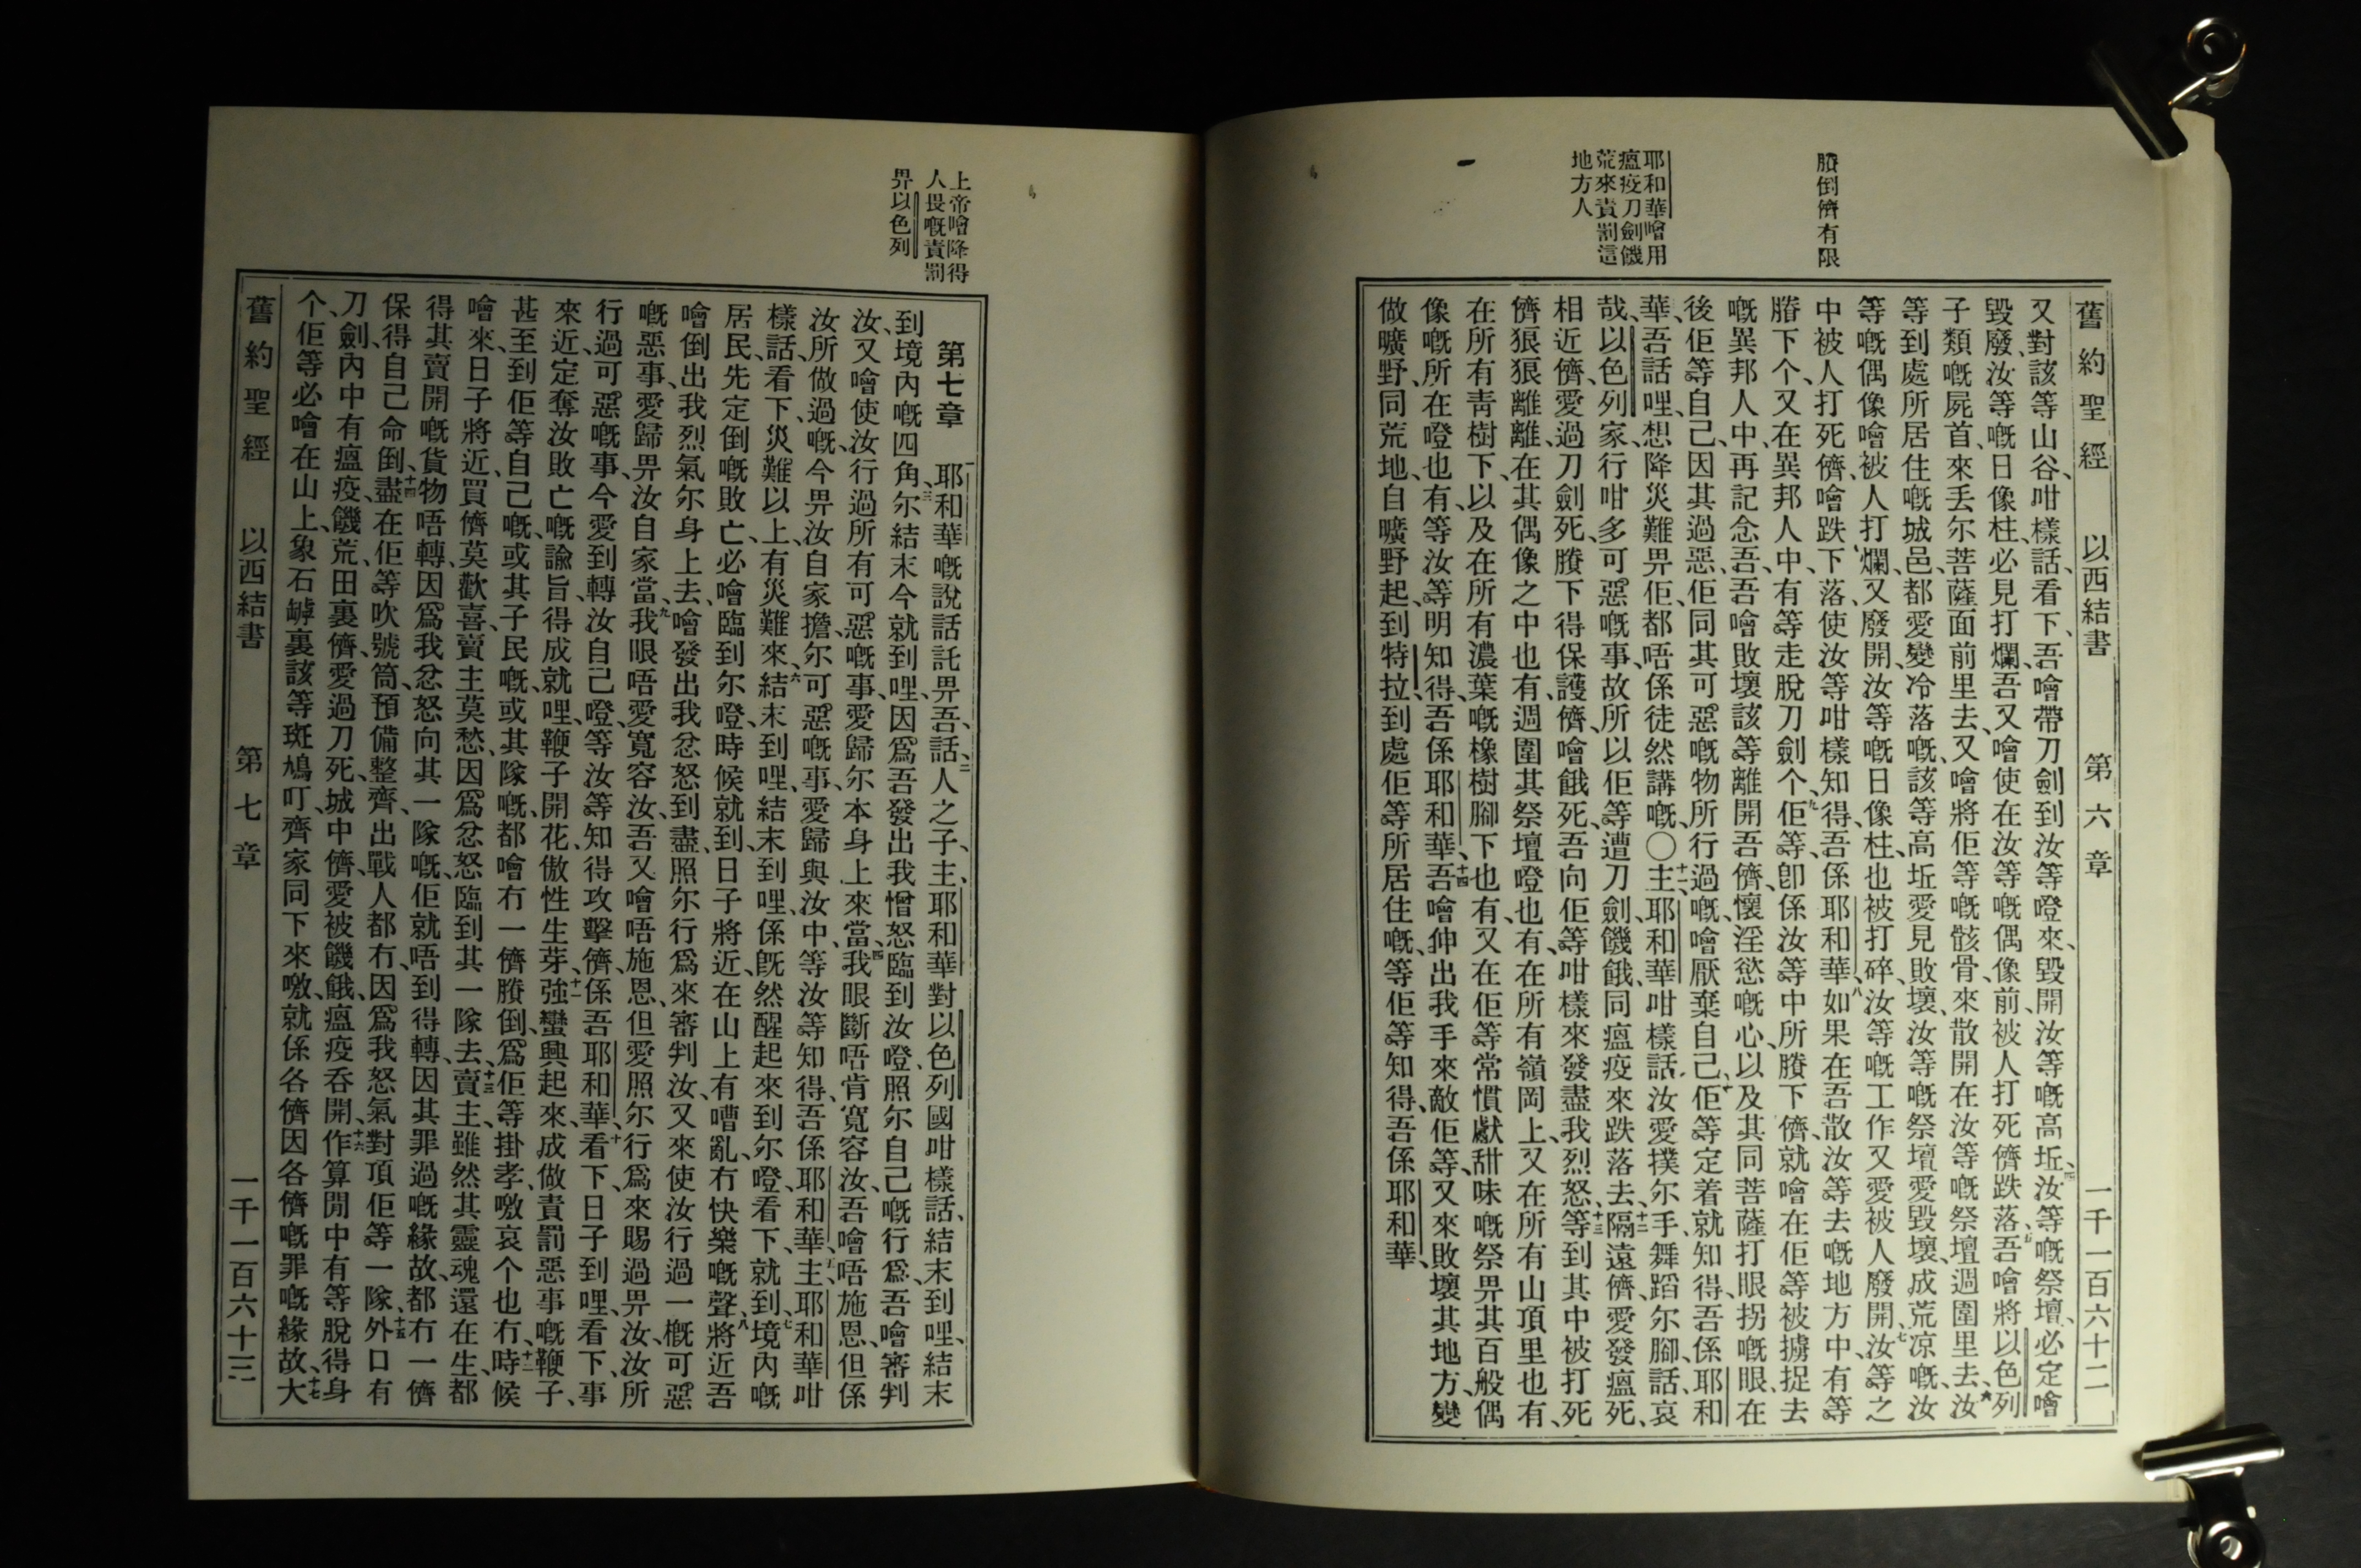 賸倒儕有限
耶和華噲用
瘟疫刀劍饑
荒來責罰這
地方人
舊約聖經 以西結書 第六章 一千一百六十二
又對該等山谷、咁樣話、看下、吾噲帶刀劍到汝等嘡來、毀開汝等嘅高坵、四汝等嘅祭壇、必定噲
毀廢、汝等嘅日像柱、必見打爛、吾又噲使在汝等嘅偶像前、被人打死儕跌落、五吾噲將以色列
子類嘅屍首、來丢尔菩薩面前里去、又噲將佢等嘅骸骨、來散開在汝等嘅祭壇週圍里去、六汝
等到處所居住嘅城邑、都愛變冷落嘅、該等高坵愛見敗壞、汝等嘅祭壇愛毀壞、成荒凉嘅、汝
等嘅偶像噲被人打爛、又廢開、汝等嘅日像柱、也被打碎、汝等嘅工作又愛被人廢開、七汝等之
中被人打死儕、噲跌下落、使汝等咁樣知得、吾係耶和華、八如果在吾散汝等去嘅地方中、有等
賸下个、又在異邦人中、有等走脫刀劍个、九佢等、卽係汝等中所賸下儕、就噲在佢等被擄捉去
嘅異邦人中、再記念吾、吾噲敗壞該等離開吾儕、懷淫慾嘅心、以及其同菩薩打眼拐嘅眼、在
後佢等自己、因其過惡、佢同其可惡嘅物所行過嘅、噲厭棄自己、十佢等定着就知得、吾係耶和
華、吾話哩、想降災難畀佢、都唔係徒然講嘅、〇十一主耶和華咁樣話、汝愛撲尔手、舞蹈尔腳、話、哀
哉、以色列家、行咁多可惡嘅事、故所以佢等遭刀劍、饑餓、同瘟疫來跌落去、十二隔遠儕、愛發瘟死、
相近儕、愛過刀劍死、賸下得保護儕、噲餓死、吾向佢等咁樣來發盡我烈怒、十三等到其中被打死
儕狼狼離離、在其偶像之中也有、週圍其祭壇嘡也有、在所有嶺岡上、又在所有山頂里也有、
在所有靑樹下、以及在所有濃葉嘅橡樹腳下也有、又在佢等常慣獻甜味嘅祭畀其百般偶
像嘅所在嘡也有、等汝等明知得、吾係耶和華、十四吾噲伸出我手來敵佢等、又來敗壞其地方、變
做曠野、同荒地、自曠野起、到特拉、到處佢等所居住嘅、等佢等知得、吾係耶和華、
上帝噲降得
人畏嘅責罰
畀以色列
第七章 一耶和華嘅說話託畀吾、話、二人之子、主耶和華對以色列國咁樣話、結末到哩、結末
到境內嘅四角、三尔結末今就到哩、因爲吾發出我憎怒臨到汝嘡、照尔自己嘅行爲、吾噲審判
汝、又噲使汝行過所有可惡嘅事、愛歸尔本身上來當、四我眼斷唔肯寬容汝、吾噲唔施恩、但係
汝所做過嘅、今畀汝自家擔、尔可惡嘅事、愛歸與汝中、等汝等知得、吾係耶和華、五主耶和華咁
樣話、看下、災難以上、有災難來、六結末到哩、結末到哩、係既然醒起來到尔嘡、看下、就到、七境內嘅
居民、先定倒嘅敗亡、必噲臨到尔嘡、時候就到、日子將近、在山上有嘈亂、冇快樂嘅聲、八將近吾
噲倒出我烈氣尔身上去、噲發出我忿怒到盡、照尔行爲來審判汝、又來使汝行過一概可惡
嘅惡事、愛歸畀汝自家當、九我眼唔愛寬容汝、吾又噲唔施恩、但愛照尔行爲來賜過畀汝、汝所
行過可惡嘅事、今愛到轉汝自己嘡、等汝等知得攻擊儕、係吾耶和華、十看下、日子到哩、看下、事
來近、定奪汝敗亡嘅、諭旨、得成就哩、鞭子開花、傲性生芽、十一強蠻興起來、成做責罰惡事嘅鞭子、
甚至到佢等自己嘅、或其子民嘅、或其隊嘅、都噲冇一儕賸倒、爲佢等掛孝、噭哀个也冇、十二時候
噲來、日子將近、買儕莫歡喜、賣主莫愁、因爲忿怒臨到其一隊去、十三賣主、雖然其靈魂還在生、都
得其賣開嘅貨物唔轉、因爲我忿怒向其一隊嘅、佢就唔到得轉、因其罪過嘅緣故、都冇一儕
保得自己命倒、十四盡在佢等吹號筒、預備整齊、出戰人都冇、因爲我怒氣對頂佢等一隊、十五外口有
刀劍、內中有瘟疫、饑荒、田裏儕、愛過刀死、城中儕、愛被饑餓、瘟疫呑開、十六作算閒中有等脫得身
个、佢等必噲在山上、象石罅裏該等斑鳩叮、齊家同下來噭、就係各儕因各儕嘅罪嘅緣故、十七大
舊約聖經 以西結書 第七章 一千一百六十三